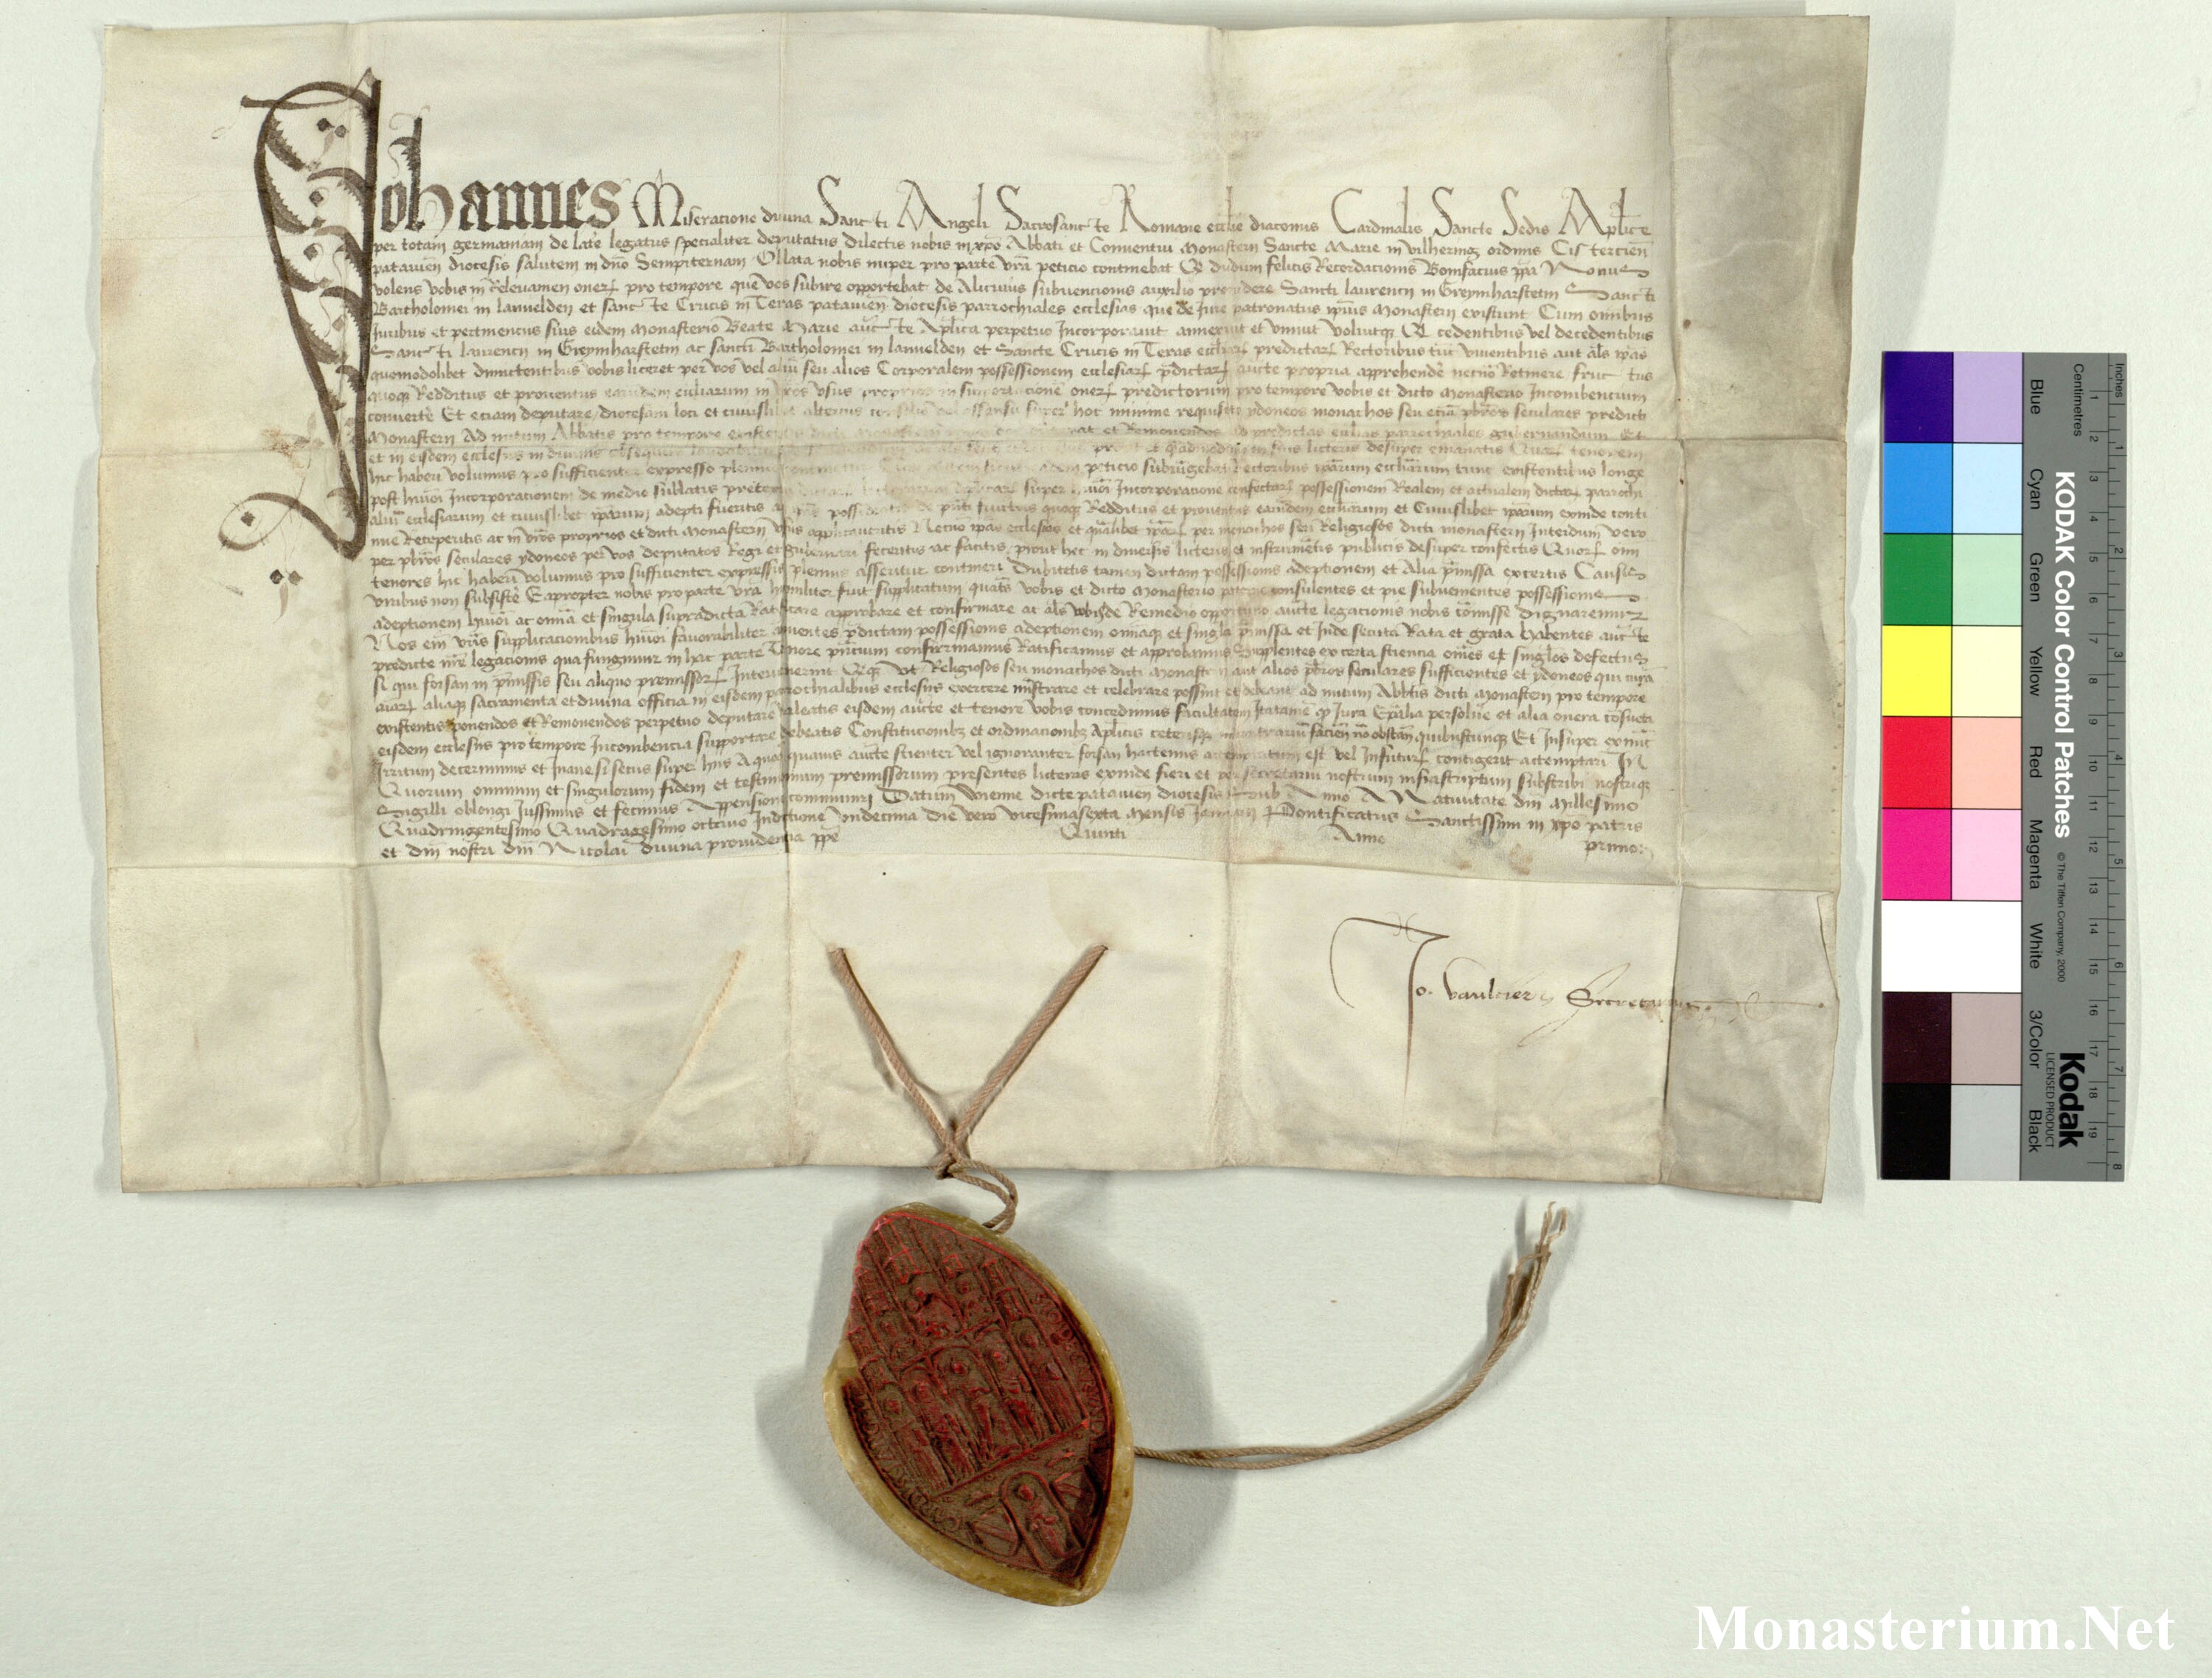 Johannes Miseratione diuina Sancti Angeli Sacrosancte Romane eccl̄ie diaconus Cardinalis Sancte Sedis Apl̄ice
per totam germaniam de late legatus specialiter deputatus Dilectis nobis in xp̄o Abbati et Conuentui Monasterii Sancte Marie in Vilhering ordinis Cistercien̄
patauien̄ diocesis salutem in dn̄o Sempiternam Oblata nobis nuper pro parte vr̄a peticio continebat Q dudum felicis Recordacionis Bonifacius pp̄a Nonus
volens vobis in Releuamen oner pro tempore que vos subire opportebat de Alicuius subuencionis auxilio prouidere Sancti laurencij in Greymharstetin Sancti
Bartholomei in lanuelden et sancte Crucis in Teras patauien̄ diocesis parrochiales ecclesias que de Jure patronatus ip̄ius Monasterii existunt Cum omnibus
Juribus et pertinenciis suis eidem Monasterio Beate Marie aucte Apl̄ica perpetuo Incorporauit annexuit et vniuit voluitq Q cedentibus vel decedentibus
Sancti laurencij in Greymharstetin ac sancti Bartholomei in lanuelden et Sancte Crucis in Teras predictar Rectoribus tūc viuentibus aut al̄s ip̄as
quomodolibet dimittentibus vobis liceret per vos vel aliū seu alios Corporalem possessionem ecclesiar p̄dictar aucte propria apprehendē necnō Retinere fructus
quoq Redditus et prouentus earundem eccliarum in vr̄os vsus proprios in supportacionē oner predictorum pro tempore vobis et dicto Monasterio Incombencium
conuertē Et eciam deputare diocesani loci et cuiuslibet alterius super hoc minime requisito ydoneos monachos seu eciā pbr̄os seculares predicti
Monasterii Ad nutum Abbatis pro tempore et Remouendos ad predictas ecclias parrochiales gubernandum Et
et in eisdem ecclesiis in diuinis suis litteris desuper emanatis Quar tenorem
hic haberi volumus pro sufficienter expresso peticio subiūgebat Rectoribus ip̄arum eccliarum tunc existentibus longe
post huiōi Incorporationem de medio sublatis super huiōi Incorporacione confectar possessionem Realem et actualem dictar parrochi
aliū ecclesiarum et cuiuslibet ip̄arum adepti fueritis quoq Redditus et prouentus earūdem eccliarum et Cuiuslibet ip̄arum exinde conti
nue Receperitis ac in vr̄os proprios et dicti Monasterii vsus applicaueritis Necnō ip̄as ecclesias et quālibet ip̄ar per monachos seu Religiosos dicti monasterii Interdum vero
per pbr̄os seculares ydoneos per vos deputatos Regi et gubernari feceritis ac facitis prout hec in diuersis litteris et instrumētis publicis desuper confectis Quor om̄
tenores hic haberi volumus pro sufficienter expressis plenius asseritur contineri Dubitetis tamen dictam possessionis adeptionem et Alia p̄missa excertis Causis
viribus non subsistē Eapropter nobis pro parte vr̄a humiliter fuit supplicatum quat̄s vobis et dicto Monasterio consulentes et pie subuenientes possessionis
adeptionem huiōi ac om̄ia et singula supradicta Ratificare approbare et confirmare ac al̄s vobis de Remedio opportuno aucte legacionis nobis cōmisse dignaremur
Nos ein vr̄is supplicacionibus huiōi fauorabiliter annuentes p̄dictam possessionis adeptionem omniaq et singla p̄missa et Inde secuta Rata et grata habentes aucte
predicte nr̄e legacionis qua fungimur in hac parte Tenore pn̄cium confirmamus Ratificamus et approbamus Supplentes ex certa sciencia om̄es et singlos defectus
si qui forsan in p̄missis seu aliquo premissor Interuenerint Q q vt Religiosos seu monachos dicti Monasterii aut alios pbr̄os seculares sufficientes et ydoneos qui curā
aiar aliaq sacramenta et diuina officia in eisdem parrochialibus ecclesiis exercere mīstrare et celebrare possint et debeant ad nutum Abbtis dicti Monasterii pro tempore
existentis ponendos et Remouendos perpetuo deputare valeatis eisdem aucte et tenore vobis concedimus facultatem Itatamē q Jura Ep̄alia persolue et alia onera cōsueta
eisdem ecclesiis pro tempore Incombencia supportare debeatis Constitucionibz et ordinacionibz Apl̄icis ceterisq incontrariū facien̄ nō obstan̄ quibuscunq Et Insuper exnūc
Irritum decernimus et Inane si secus super hiis A quoquam quauis aucte scienter vel ignoranter forsan hactenus attemptatum est vel Infutur contigerit attemptari In
Quorum omnium et singulorum fidem et testimonium premissorum presentes litteras exinde fieri et per secretariū nostrum infrascriptum subscribi nostriq
Sigilli oblongi Jussimus et fecimus Appensione communiri Datum Wienne dicte patauien̄ diocesis Sub Anno A Natiuitate dn̄i Millesimo
Quadringentesimo Quadragesimo octauo Indictione Vndecima die vero vicesimasexta Mensis Januarii Pontificatus Sanctissimi in xp̄o patris
et dn̄i nostri dn̄i Nicolai diuina prouidencia pp̄e Quinti Anno primo:
Jo. Vaultier Secretarius
KODAK Color Control Patches
© The Tiffen Company, 2000
Kodak
LICENSED PRODUCT
Inches 1 2 3 4 5 6 7 8
Centimetres 1 2 3 4 5 6 7 8 9 10 11 12 13 14 15 16 17 18 19
Blue
Cyan
Green
Yellow
Red
Magenta
White
3/Color
Black
Monasterium.Net